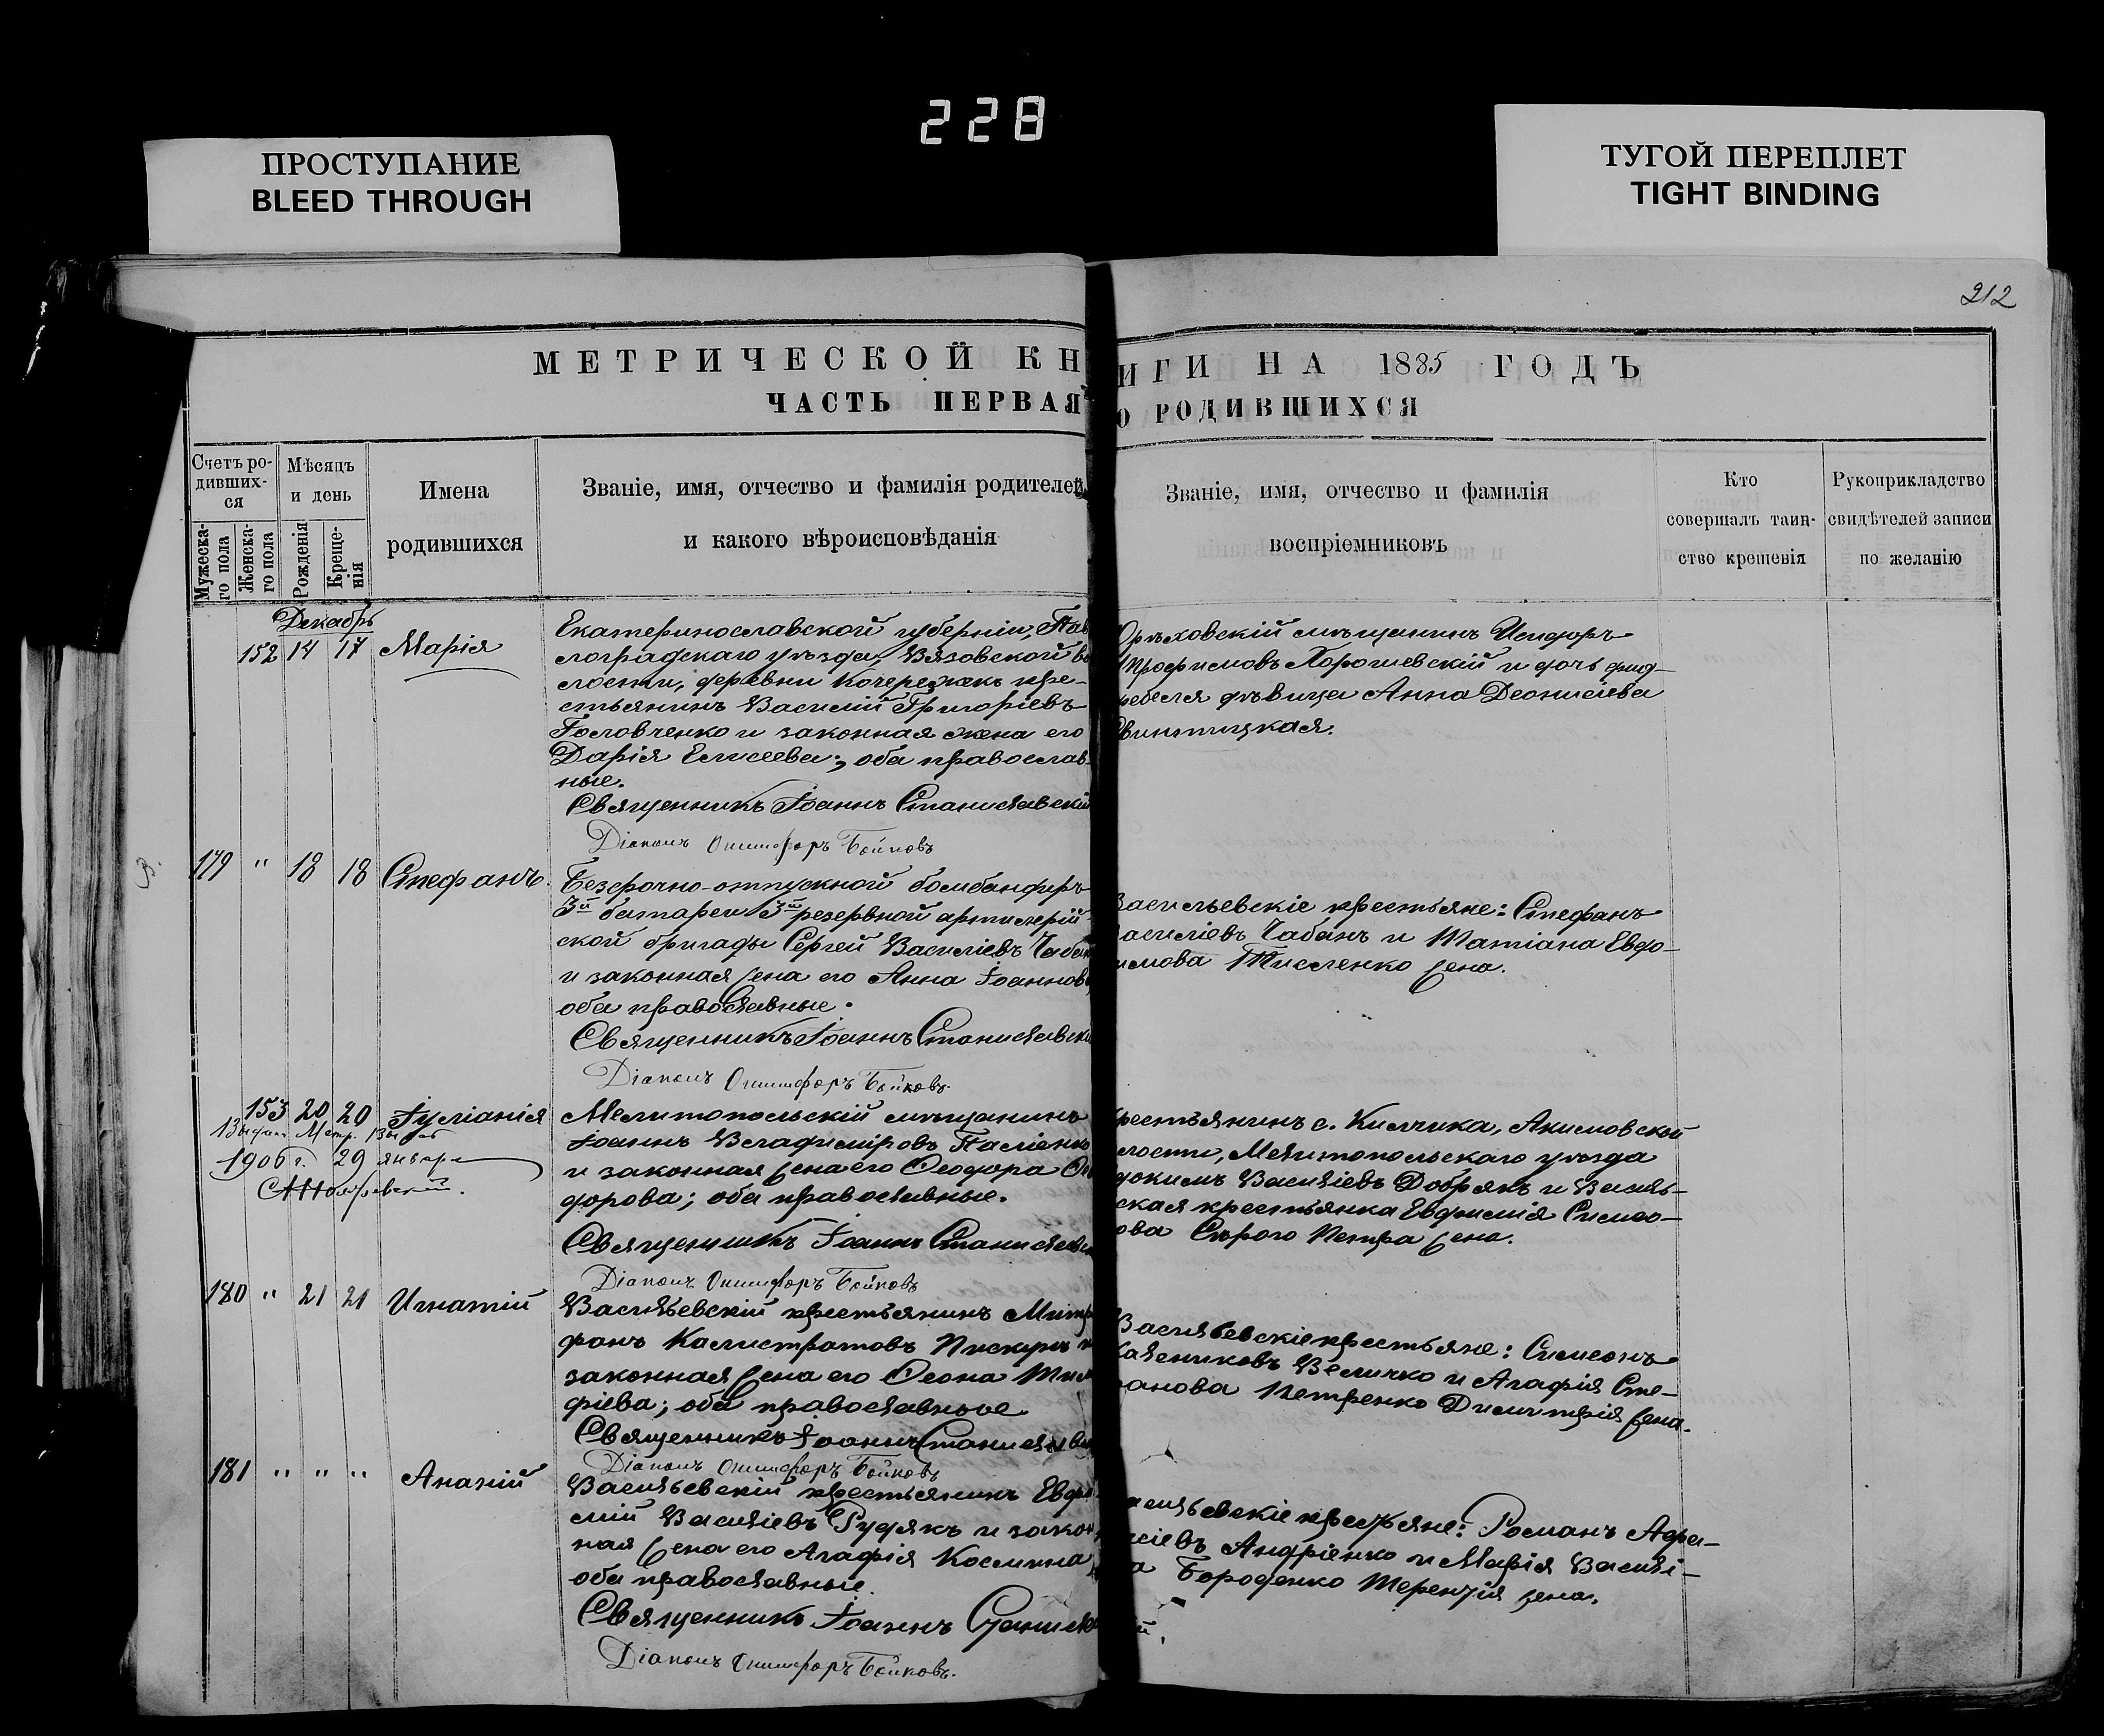 228
ПРОСТУПАНИЕ
BLEED THROUGH
ТУГОЙ ПЕРЕПЛЕТ
TIGHT BINDING
212
МЕТРИЧЕСКОЙ КН
ИГИ НА 1885 ГОДЪ
ЧАСТЬ ПЕРВАЯ
О РОДИВШИХСЯ
Счетъ ро-
дивших-
ся
Мужеска-
го пола
Женска-
го пола
Мѣсяцъ
и день
Рожденія
Креще-
нія
Имена
родившихся
Званіе, имя, отчество и фамилія родителей
и какого вѣроисповѣданія
Званіе, имя, отчество и фамилія
воспріемниковъ
Кто
совершалъ таин-
ство крещенія
Рукоприкладство
свидѣтелей записи
по желанію
Декабрь
152 14 17 Марія
Екатеринославской губерніи, Пав
лоградскаго уѣзда, Вязовской во
лости, деревни Кочережекъ кре-
стьянинъ Василій Григоріевъ
Головченко и законная жена его
Дарія Елисеева; оба православ
ные.
Священникъ Іоаннъ Станиславскій
Діаконъ Онисифоръ Бойковъ
Орѣховскій мѣщанинъ Исидоръ
Трофимовъ Хорошевскій и дочь фельд-
фебеля дѣвица Анна Деонисіева
Свинтицкая.
179 " 18 18 Стефанъ
Безсрочно-отпускной бомбандиръ
3й батареи 3й резервной артилерій
ской бригады Сергей Василіевъ Чабан
и законная жена его Анна Іоаннов
оба православные.
Священникъ Іоаннъ Станиславскі
Діаконъ Онисифоръ Бойковъ
Васильевскіе крестьяне: Стефанъ
Василіевъ Чабанъ и Татіана Евдо-
кимова Тисленко жена.
153 20 20 Іуліанія
1906 г. 29 января
Мелитопольскій мѣщанинъ
Іоаннъ Владиміровъ Паліенко
и законная жена его Ѳеодора Ѳео
дорова; оба православные.
Священникъ Іоаннъ Станиславск
Діаконъ Онисифоръ Бойковъ
крестьянинъ с. Кильчика, Акимовской
лости, Мелитопольскаго уѣзда
докимъ Василіевъ Добрякъ и Василь-
ская крестьянка Евфимія Симео-
ова Сѣраго Петра жена.
180 " 21 21 Игнатій
Васильевскій крестьянинъ Митро
фанъ Калистратовъ Пискунъ и
законная жена его Ѳеона Тим
фіева; оба православные
Священникъ Іоаннъ Станиславск
Діаконъ Онисифоръ Бойковъ
Васильевскіе крестьяне: Симеонъ
Калениковъ Величко и Агафія Сте-
фанова Петренко Димитрія жена.
181 " " " Ананій
Васильевскій крестьянинъ Евфи
мій Василіевъ Рудякъ и закон
ная жена его Агафія Космина
оба православные.
Священникъ Іоаннъ Станисла
Діаконъ Онисифоръ Бойковъ.
асильевскіе крестьяне: Романъ Афа-
сіевъ Андріенко и Марія Василі-
а Бороденко Терентія жена.